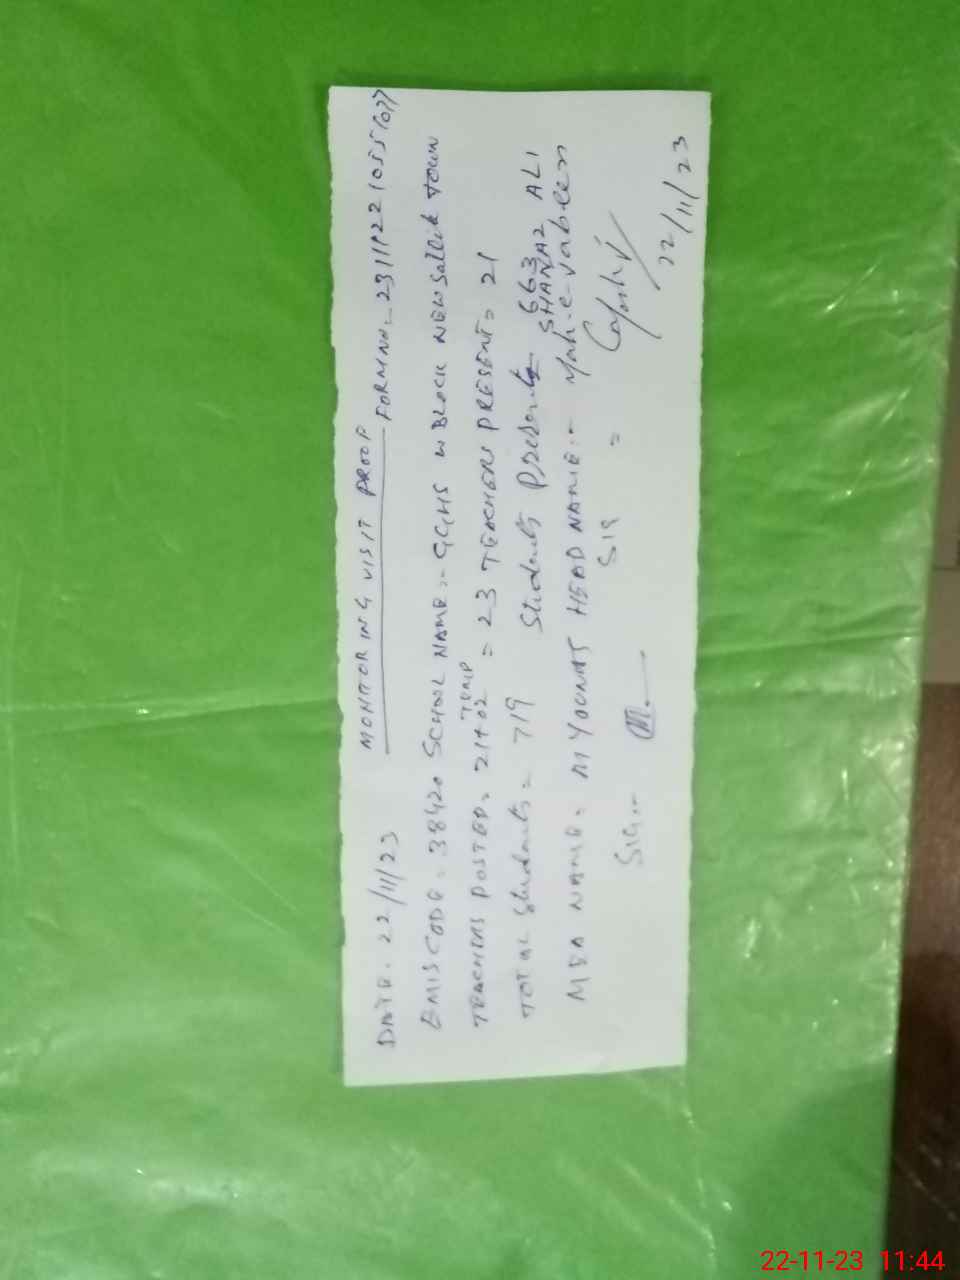 MONITORING VISIT PROOF
DATE. 22/11/23 FORM NO.
EMISCODE. 38420 SCHOOL NAME:- GGHS W BLOCK NEW Sattlit TOWN
TEACHERS POSTED. 21+02 TEMP = 23 TEACHERS PRESENT= 21
TOTAL Students = 719 Students Presents 663
SHANAZ ALI
MEA NAME. M YOUNAS HEAD NAME:- Mah-e-Jabeen
SIG.- SIG =
22/11/23
22-11-23 11:44